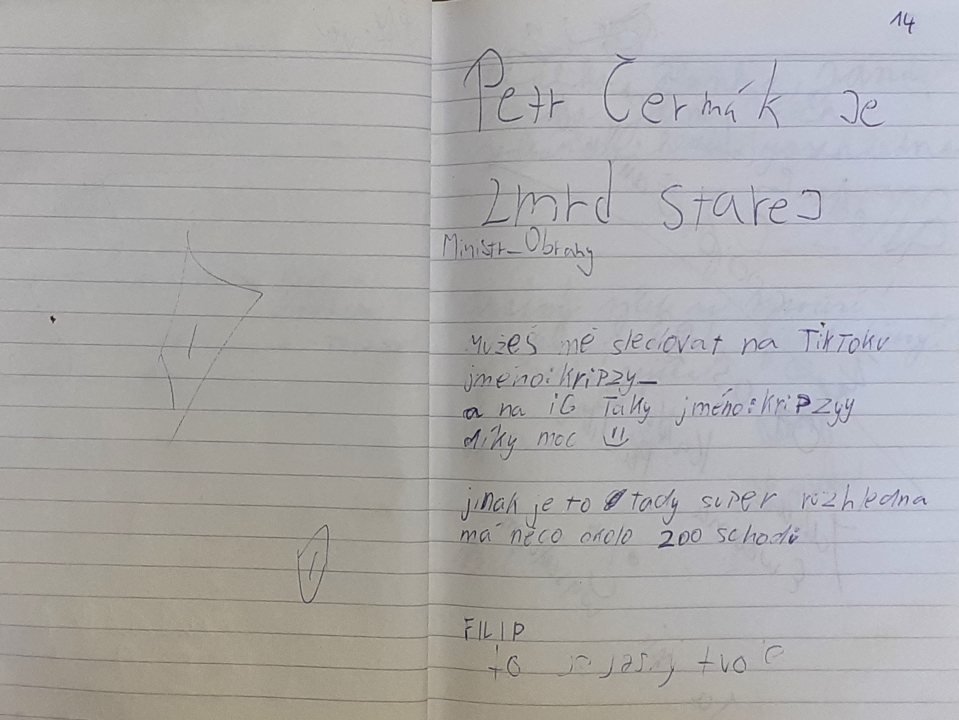 14
Petr Čermák je
zmrd starej
Ministr_Obrany
můžeš mě sledovat na TikToku
jméno:kripzy_
a na iG taky jméno:kripzyy
díky moc
jinak je to tady super rozhledna
má něco okolo 200 schodů
FILIP
to jasný tvo